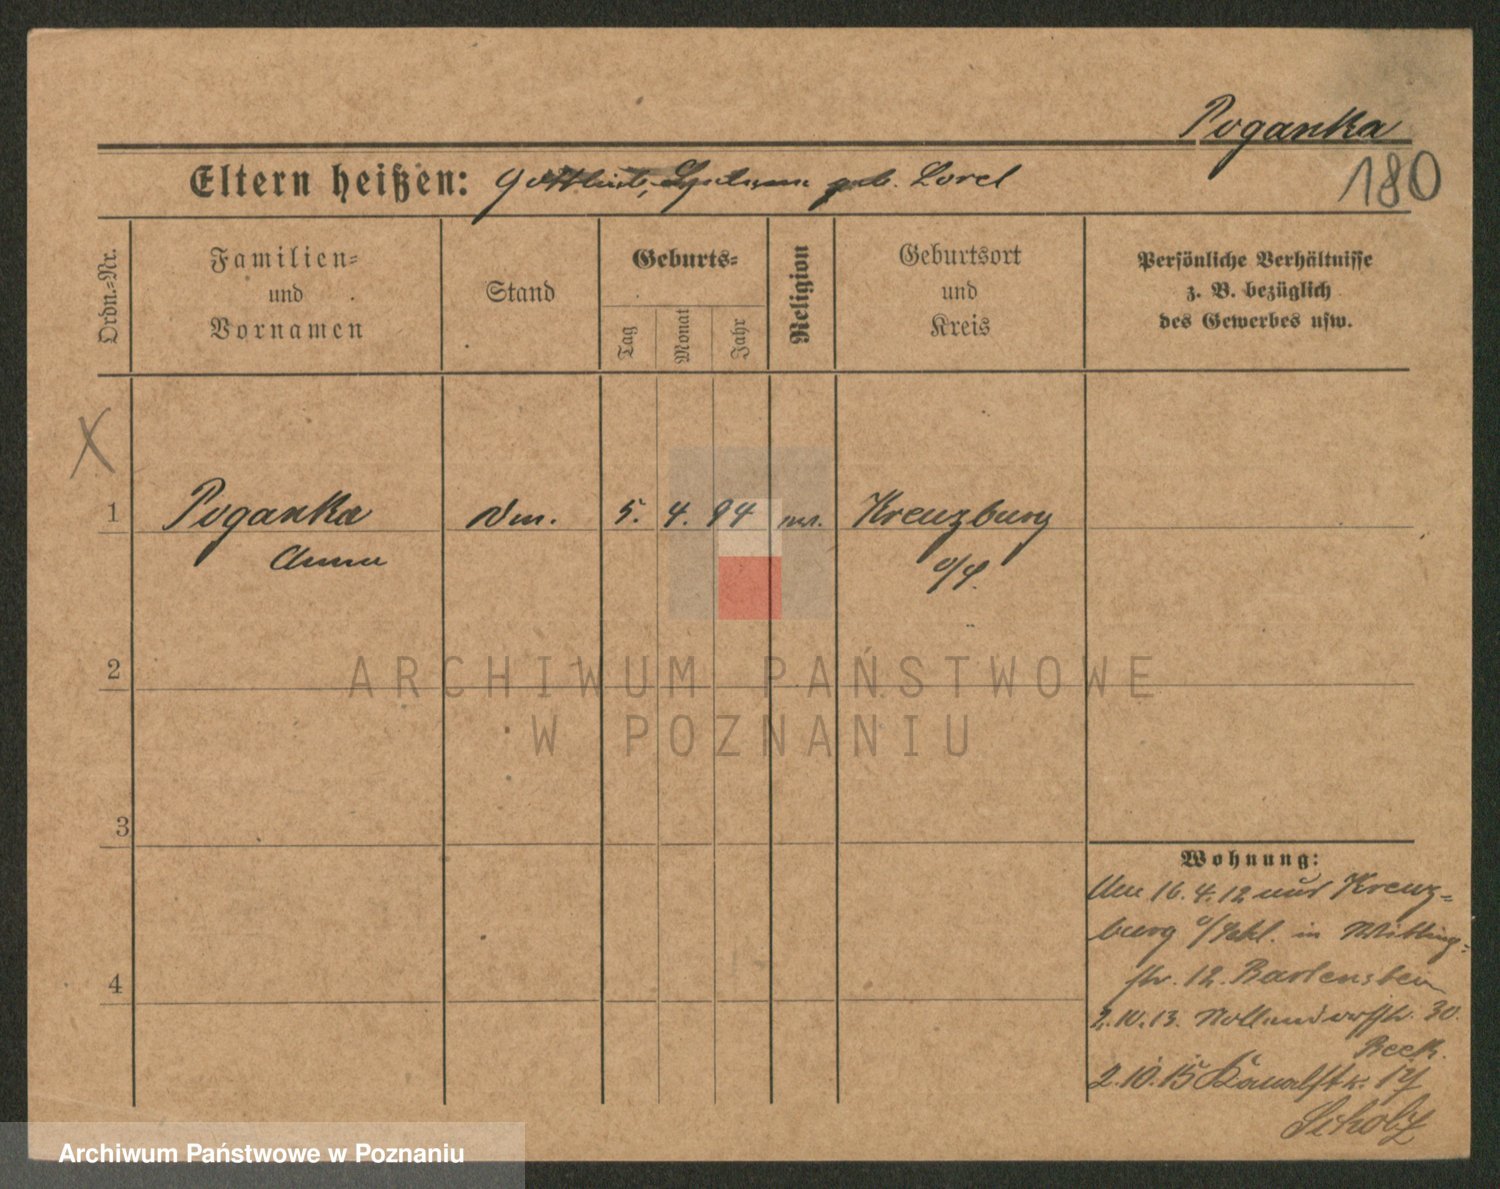 Poganka
180
Eltern heißen: Gottlieb, geb. Lorel
Ordn.-Nr.
Familien-
und
Vornamen
Stand
Geburts-
Tag
Monat
Jahr
Religion
Geburtsort
und
Kreis
Persönliche Verhältnisse
z. B. bezüglich
des Gewerbes usw.
X
1 Poganka 5. 4. 94 Kreuzburg
Anna o/S.
2
3
4
Wohnung:
16.4.12 aus Kreuz-
burg in
str. 12. Bartenstein
2.10.13. 30.
2.10.15 Kanalstr. 17
Scholz
ARCHIWUM PAŃSTWOWE
W POZNANIU
Archiwum Państwowe w Poznaniu